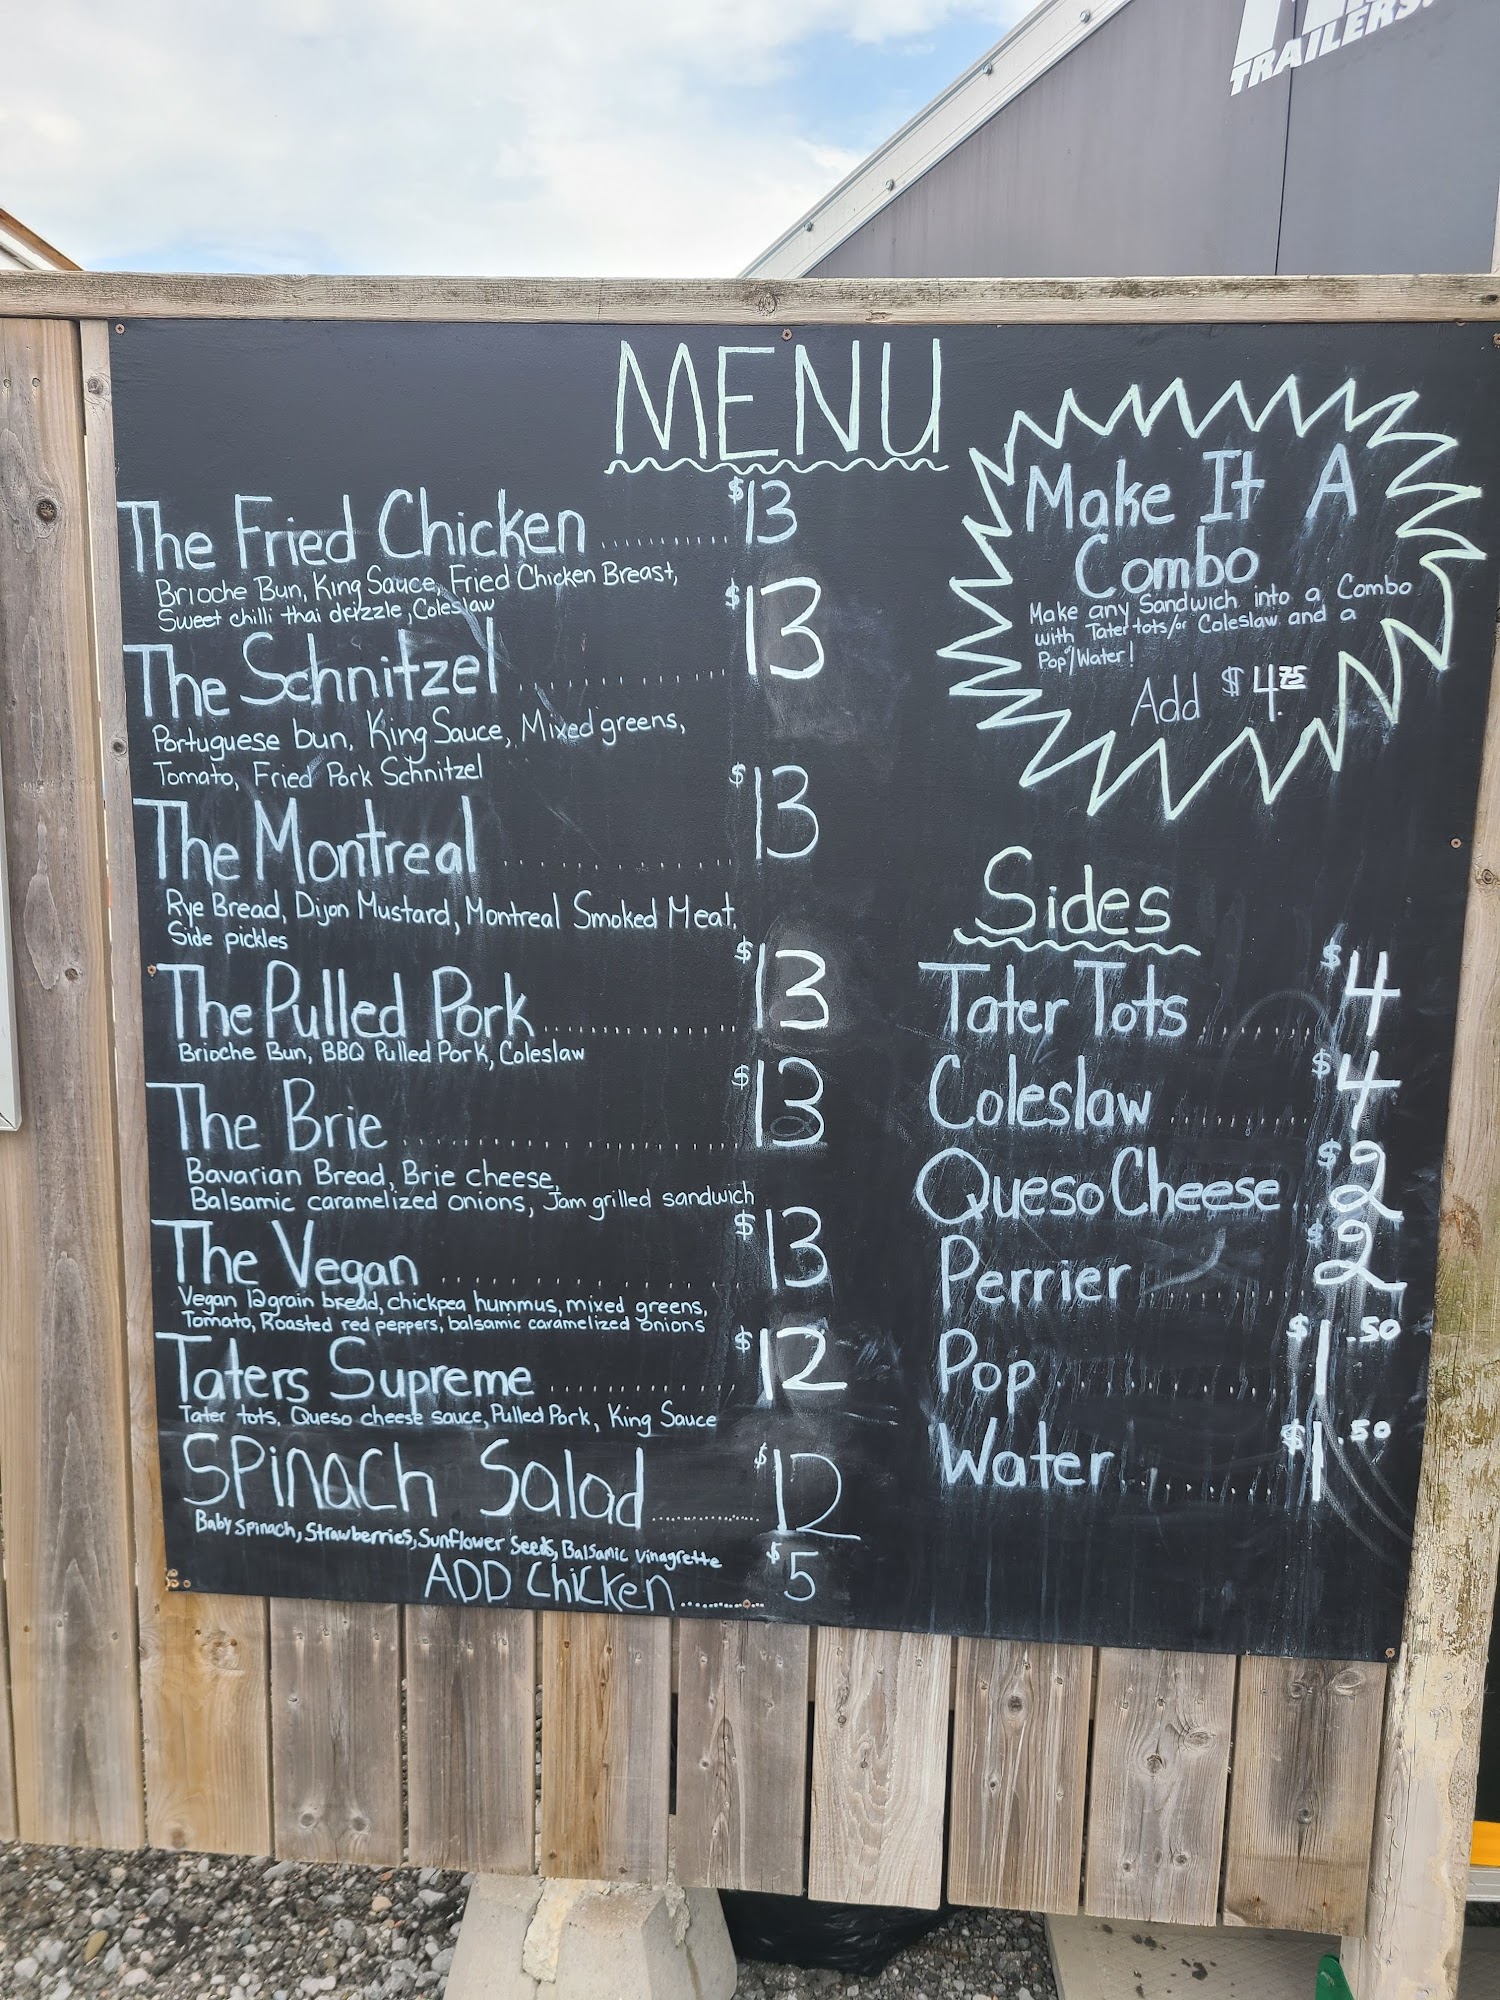 TRAILERS
MENU
The Fried Chicken ......... $13
Brioche Bun, King Sauce, Fried Chicken Breast,
Sweet chilli thai drizzle, Coleslaw
The Schnitzel ............ $13
Portuguese bun, King Sauce, Mixed greens,
Tomato, Fried Pork Schnitzel
The Montreal ............ $13
Rye Bread, Dijon Mustard, Montreal Smoked Meat,
Side pickles
The Pulled Pork ............ $13
Brioche Bun, BBQ Pulled Pork, Coleslaw
The Brie ............ $13
Bavarian Bread, Brie cheese,
Balsamic caramelized onions, Jam grilled sandwich
The Vegan ............ $13
Vegan 12grain bread, chickpea hummus, mixed greens,
Tomato, Roasted red peppers, balsamic caramelized onions
Taters Supreme ............ $12
Tater tots, Queso cheese sauce, Pulled Pork, King Sauce
Spinach Salad ............ $12
Baby Spinach, Strawberries, Sunflower Seeds, Balsamic vinagrette
ADD Chicken ............ $5
Make It A
Combo
Make any Sandwich into a Combo
with Tater tots/or Coleslaw and a
Pop/Water!
Add $4.75
Sides
Tater Tots ....... $4
Coleslaw ....... $4
Queso Cheese . $2
Perrier ....... $2
Pop ....... $1.50
Water ....... $1.50